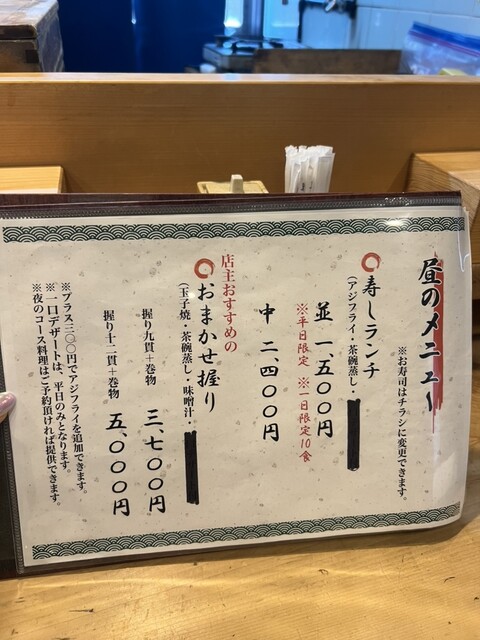 昼のメニュー
※お寿司はチラシに変更できます。
寿しランチ
(アジフライ・茶碗蒸し・
並 一、五〇〇円
※平日限定 ※一日限定10食
中 二、四〇〇円
店主おすすめの
おまかせ握り
(玉子焼・茶碗蒸し・味噌汁・
握り九貫+巻物 三、七〇〇円
握り十二貫+巻物 五、〇〇〇円
※プラス三〇〇円でアジフライを追加できます。
※一口デザートは、平日のみとなります。
※夜のコース料理はご予約頂ければ提供できます。